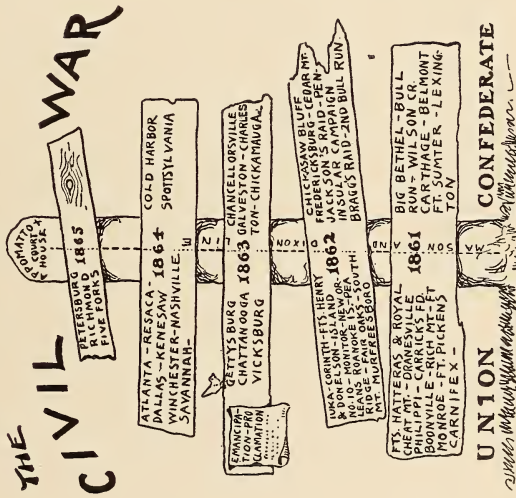 THE
CIVIL WAR
APPOMATTOX
COURT
HOUSE
PETERSBURG
RICHMOND 1865
FIVE FORKS
ATLANTA-RESACA-
DALLAS-KENESAW
WINCHESTER-NASHVILLE
SAVANNAH-
1864
COLD HARBOR
SPOTTSYLVANIA
EMANCIPA-
TION-PRO
CLAMATION
GETTYSBURG
CHATTANOOGA
VICKSBURG
1863
CHANCELLORSVILLE
GALVESTON-CHARLES
TON-CHICKAMAUGA
IUKA-CORINTH-FTS. HENRY
& DONELSON-ISLAND
NO.10-MONITOR-NEW OR-
LEANS ROANOKE IS.-PEA
RIDGE-FAIR OAKS-SOUTH
MT. MURFREESBORO
1862
CHICKASAW BLUFF
FREDERICKSBURG-CEDAR MT.
JACKSON'S RAID-PEN-
INSULAR CAMPAIGN
BRAGG'S RAID-2ND BULL RUN
FTS. HATTERAS & ROYAL
CHEAT MT.-DRANESVILLE
PHILIPPI-CARRICKS FD.
BOONVILLE-RICH MT-FT
MONROE-FT. PICKENS
CARNIFEX-
1861
BIG BETHEL-BULL
RUN-WILSON CR.
CARTHAGE-BELMONT
FT. SUMTER-LEXING-
TON
MASON AND DIXON LINE
UNION CONFEDERATE